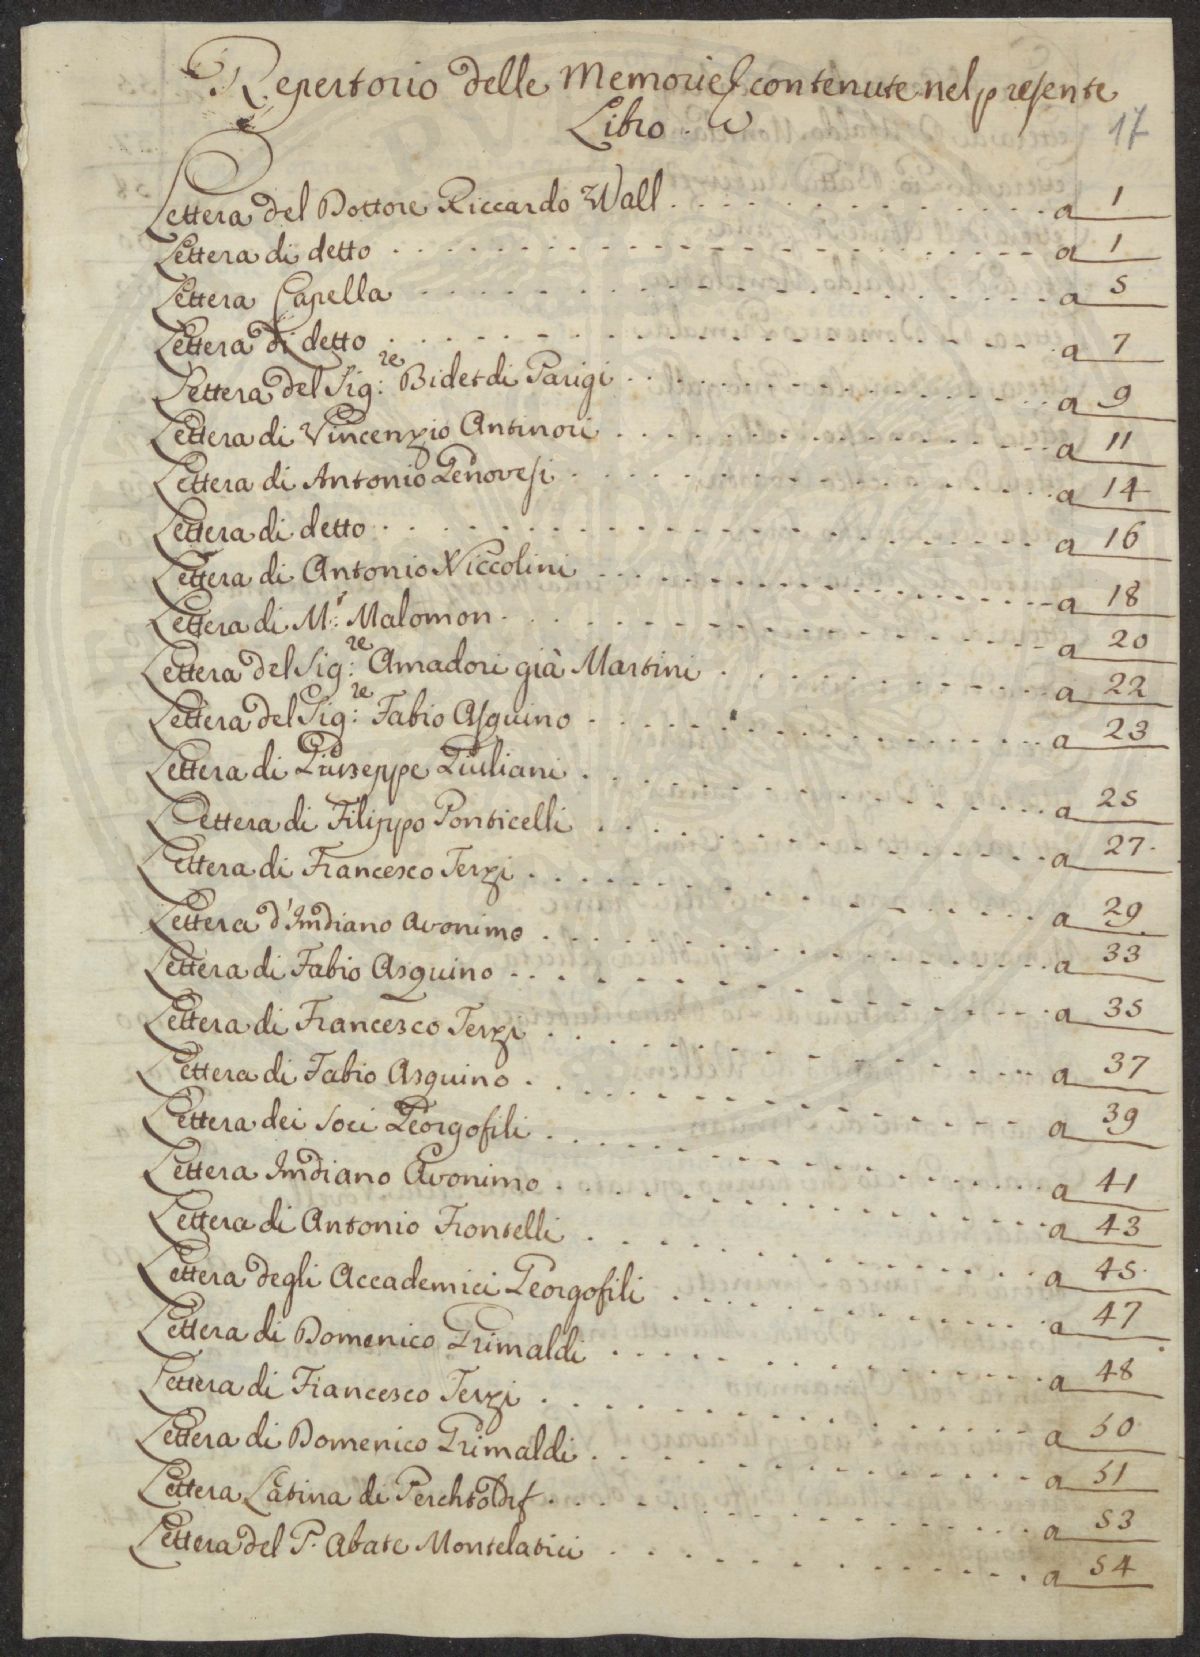 Repertorio delle Memorie contenute nel presente
Libro.
17
Lettera del Dottore Riccardo Wall . . . . . . . . . . . . . . a 1
Lettera di detto . . . . . . . . . . . . . . . . . . . . a 1
Lettera Capella . . . . . . . . . . . . . . . . . . . a 5
Lettera di detto . . . . . . . . . . . . . . . . . . . a 7
Lettera del Sig:re Bidet di Parigi . . . . . . . . . . . . . a 9
Lettera di Vincenzio Antinori . . . . . . . . . . . . . . a 11
Lettera di Antonio Genovesi . . . . . . . . . . . . . . . a 14
Lettera di detto . . . . . . . . . . . . . . . . . . . a 16
Lettera di Antonio Niccolini . . . . . . . . . . . . . . . a 18
Lettera di Mr: Malomon . . . . . . . . . . . . . . . . . a 20
Lettera del Sig:re Amadori già Martini . . . . . . . . . . . a 22
Lettera del Sig:re Fabio Asquino . . . . . . . . . . . . . . a 23
Lettera di Giuseppe Giuliani . . . . . . . . . . . . . . . a 25
Lettera di Filippo Ponticelli . . . . . . . . . . . . . . . a 27
Lettera di Francesco Terzi . . . . . . . . . . . . . . . . a 29
Lettera d'Indiano Avonimo . . . . . . . . . . . . . . . . a 33
Lettera di Fabio Asquino . . . . . . . . . . . . . . . . . a 35
Lettera di Francesco Terzi . . . . . . . . . . . . . . . . a 37
Lettera di Fabio Asquino . . . . . . . . . . . . . . . . . a 39
Lettera dei Soci Georgofili . . . . . . . . . . . . . . . a 41
Lettera Indiano Avonimo . . . . . . . . . . . . . . . . . a 43
Lettera di Antonio Frontelli . . . . . . . . . . . . . . . a 45
Lettera degli Accademici Georgofili . . . . . . . . . . . . a 47
Lettera di Domenico Grimaldi . . . . . . . . . . . . . . . a 48
Lettera di Francesco Terzi . . . . . . . . . . . . . . . . a 50
Lettera di Domenico Grimaldi . . . . . . . . . . . . . . . a 51
Lettera Latina di Perchtoldt . . . . . . . . . . . . . . . a 53
Lettera del P. Abate Montelatici . . . . . . . . . . . . . a 54